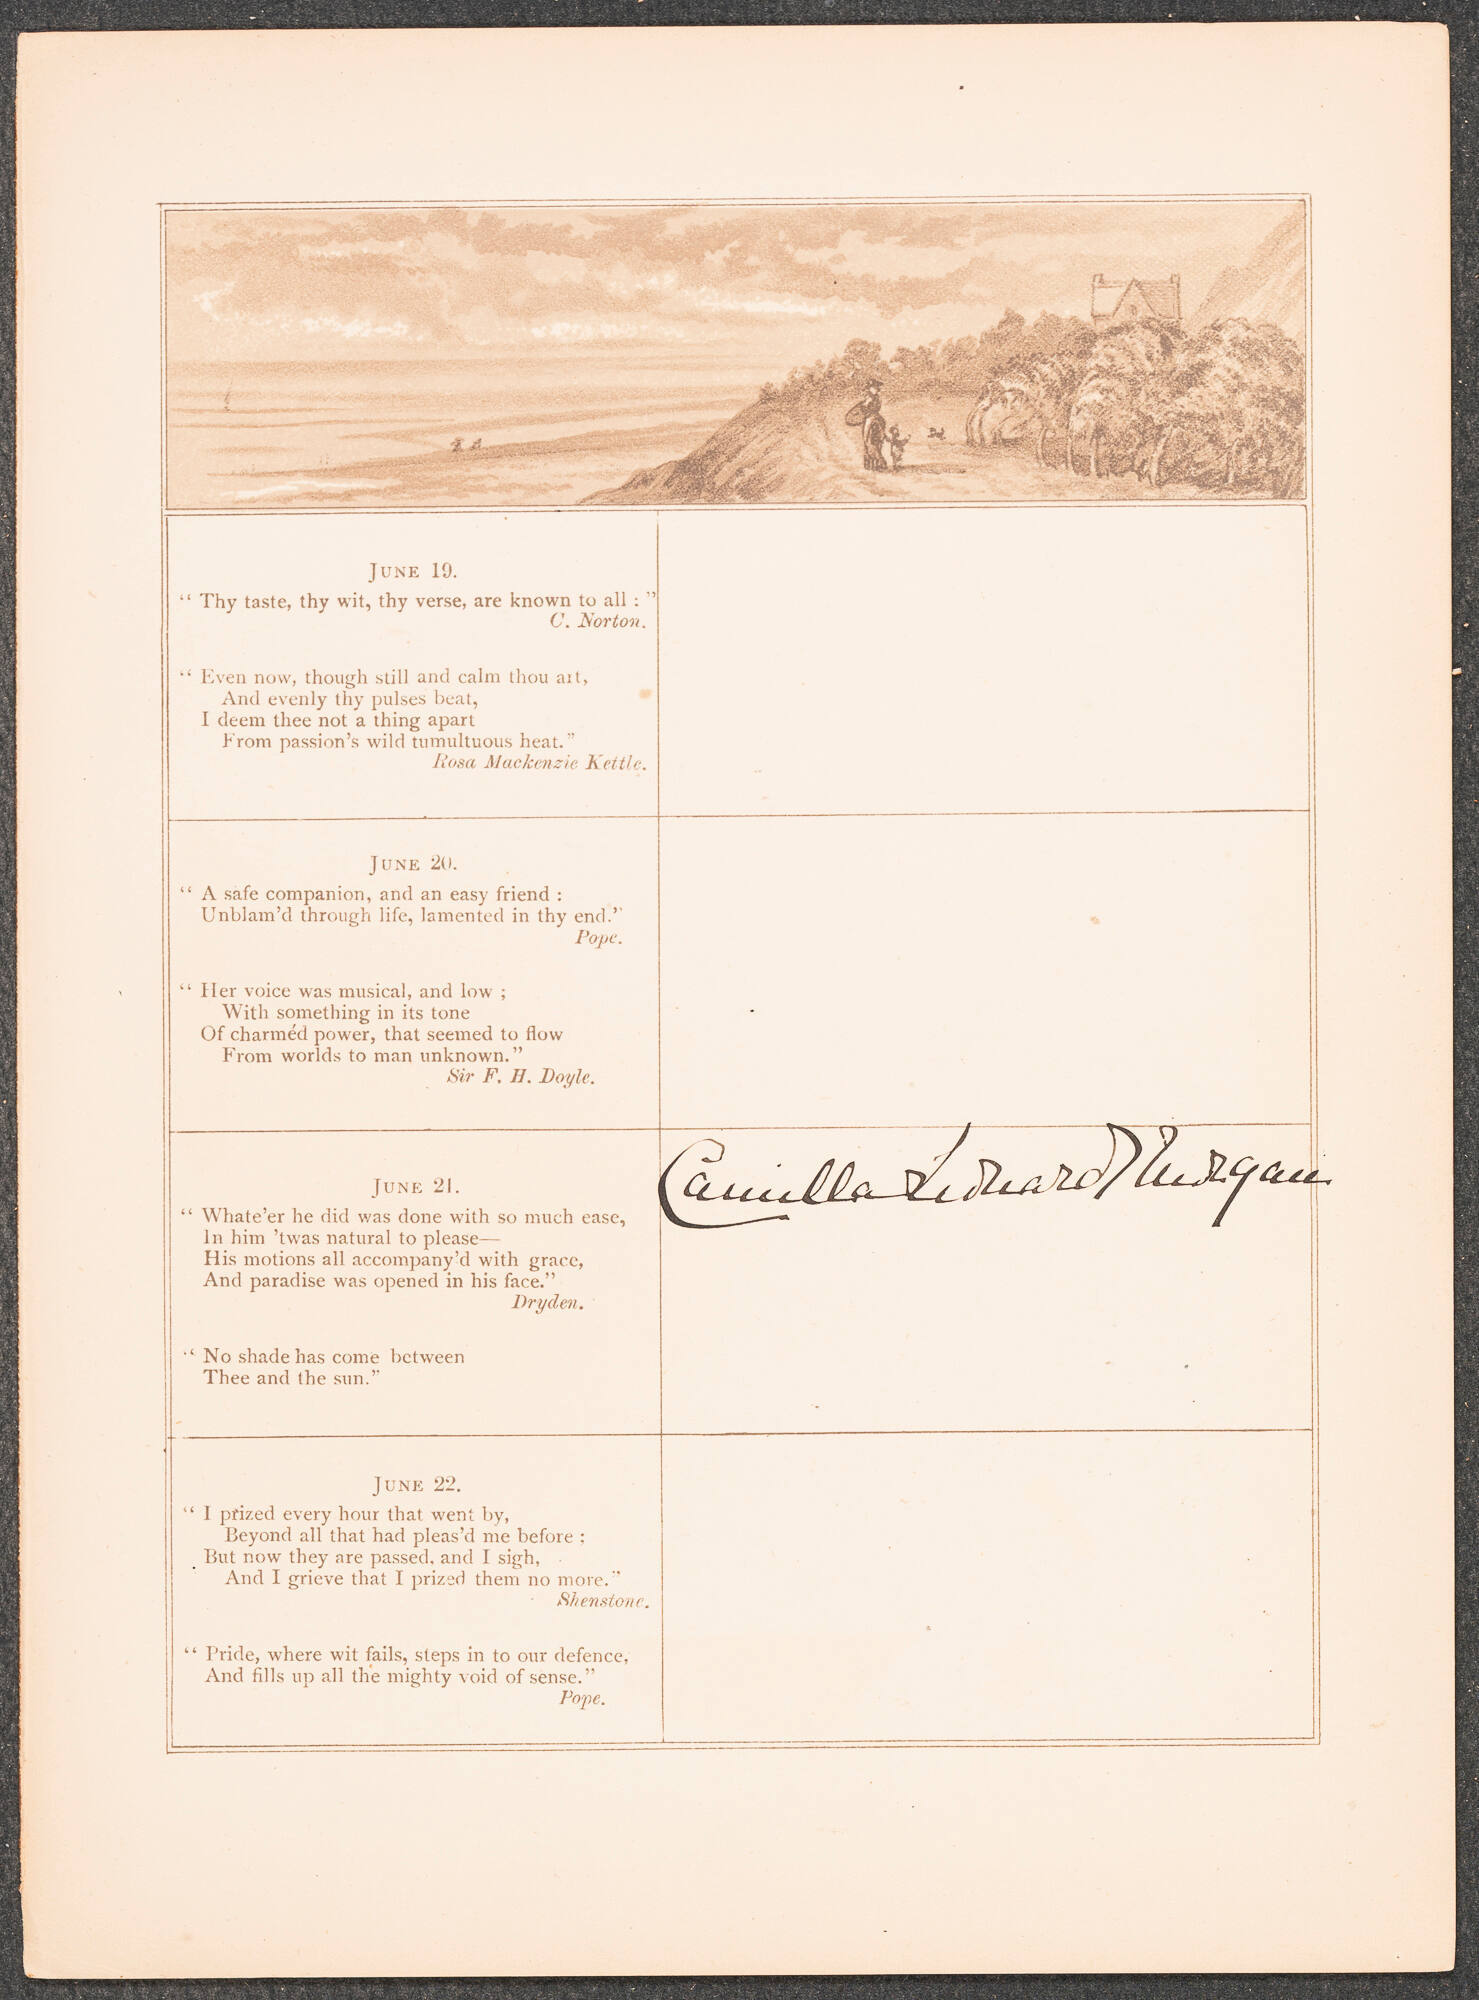 JUNE 19.
“ Thy taste, thy wit, thy verse, are known to all : ”
C. Norton.
“ Even now, though still and calm thou art,
And evenly thy pulses beat,
I deem thee not a thing apart
From passion's wild tumultuous heat.”
Rosa Mackenzie Kettle.
JUNE 20.
“ A safe companion, and an easy friend :
Unblam'd through life, lamented in thy end.”
Pope.
“ Her voice was musical, and low ;
With something in its tone
Of charméd power, that seemed to flow
From worlds to man unknown.”
Sir F. H. Doyle.
JUNE 21.
Camilla Leonard Morgan
“ Whate'er he did was done with so much ease,
In him 'twas natural to please—
His motions all accompany'd with grace,
And paradise was opened in his face.”
Dryden.
“ No shade has come between
Thee and the sun.”
JUNE 22.
“ I prized every hour that went by,
Beyond all that had pleas'd me before ;
But now they are passed, and I sigh,
And I grieve that I prized them no more.”
Shenstone.
“ Pride, where wit fails, steps in to our defence,
And fills up all the mighty void of sense.”
Pope.